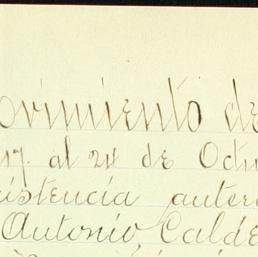 ovimiento de
17 al 24 de Octu
istencia anter
Antonio Calde